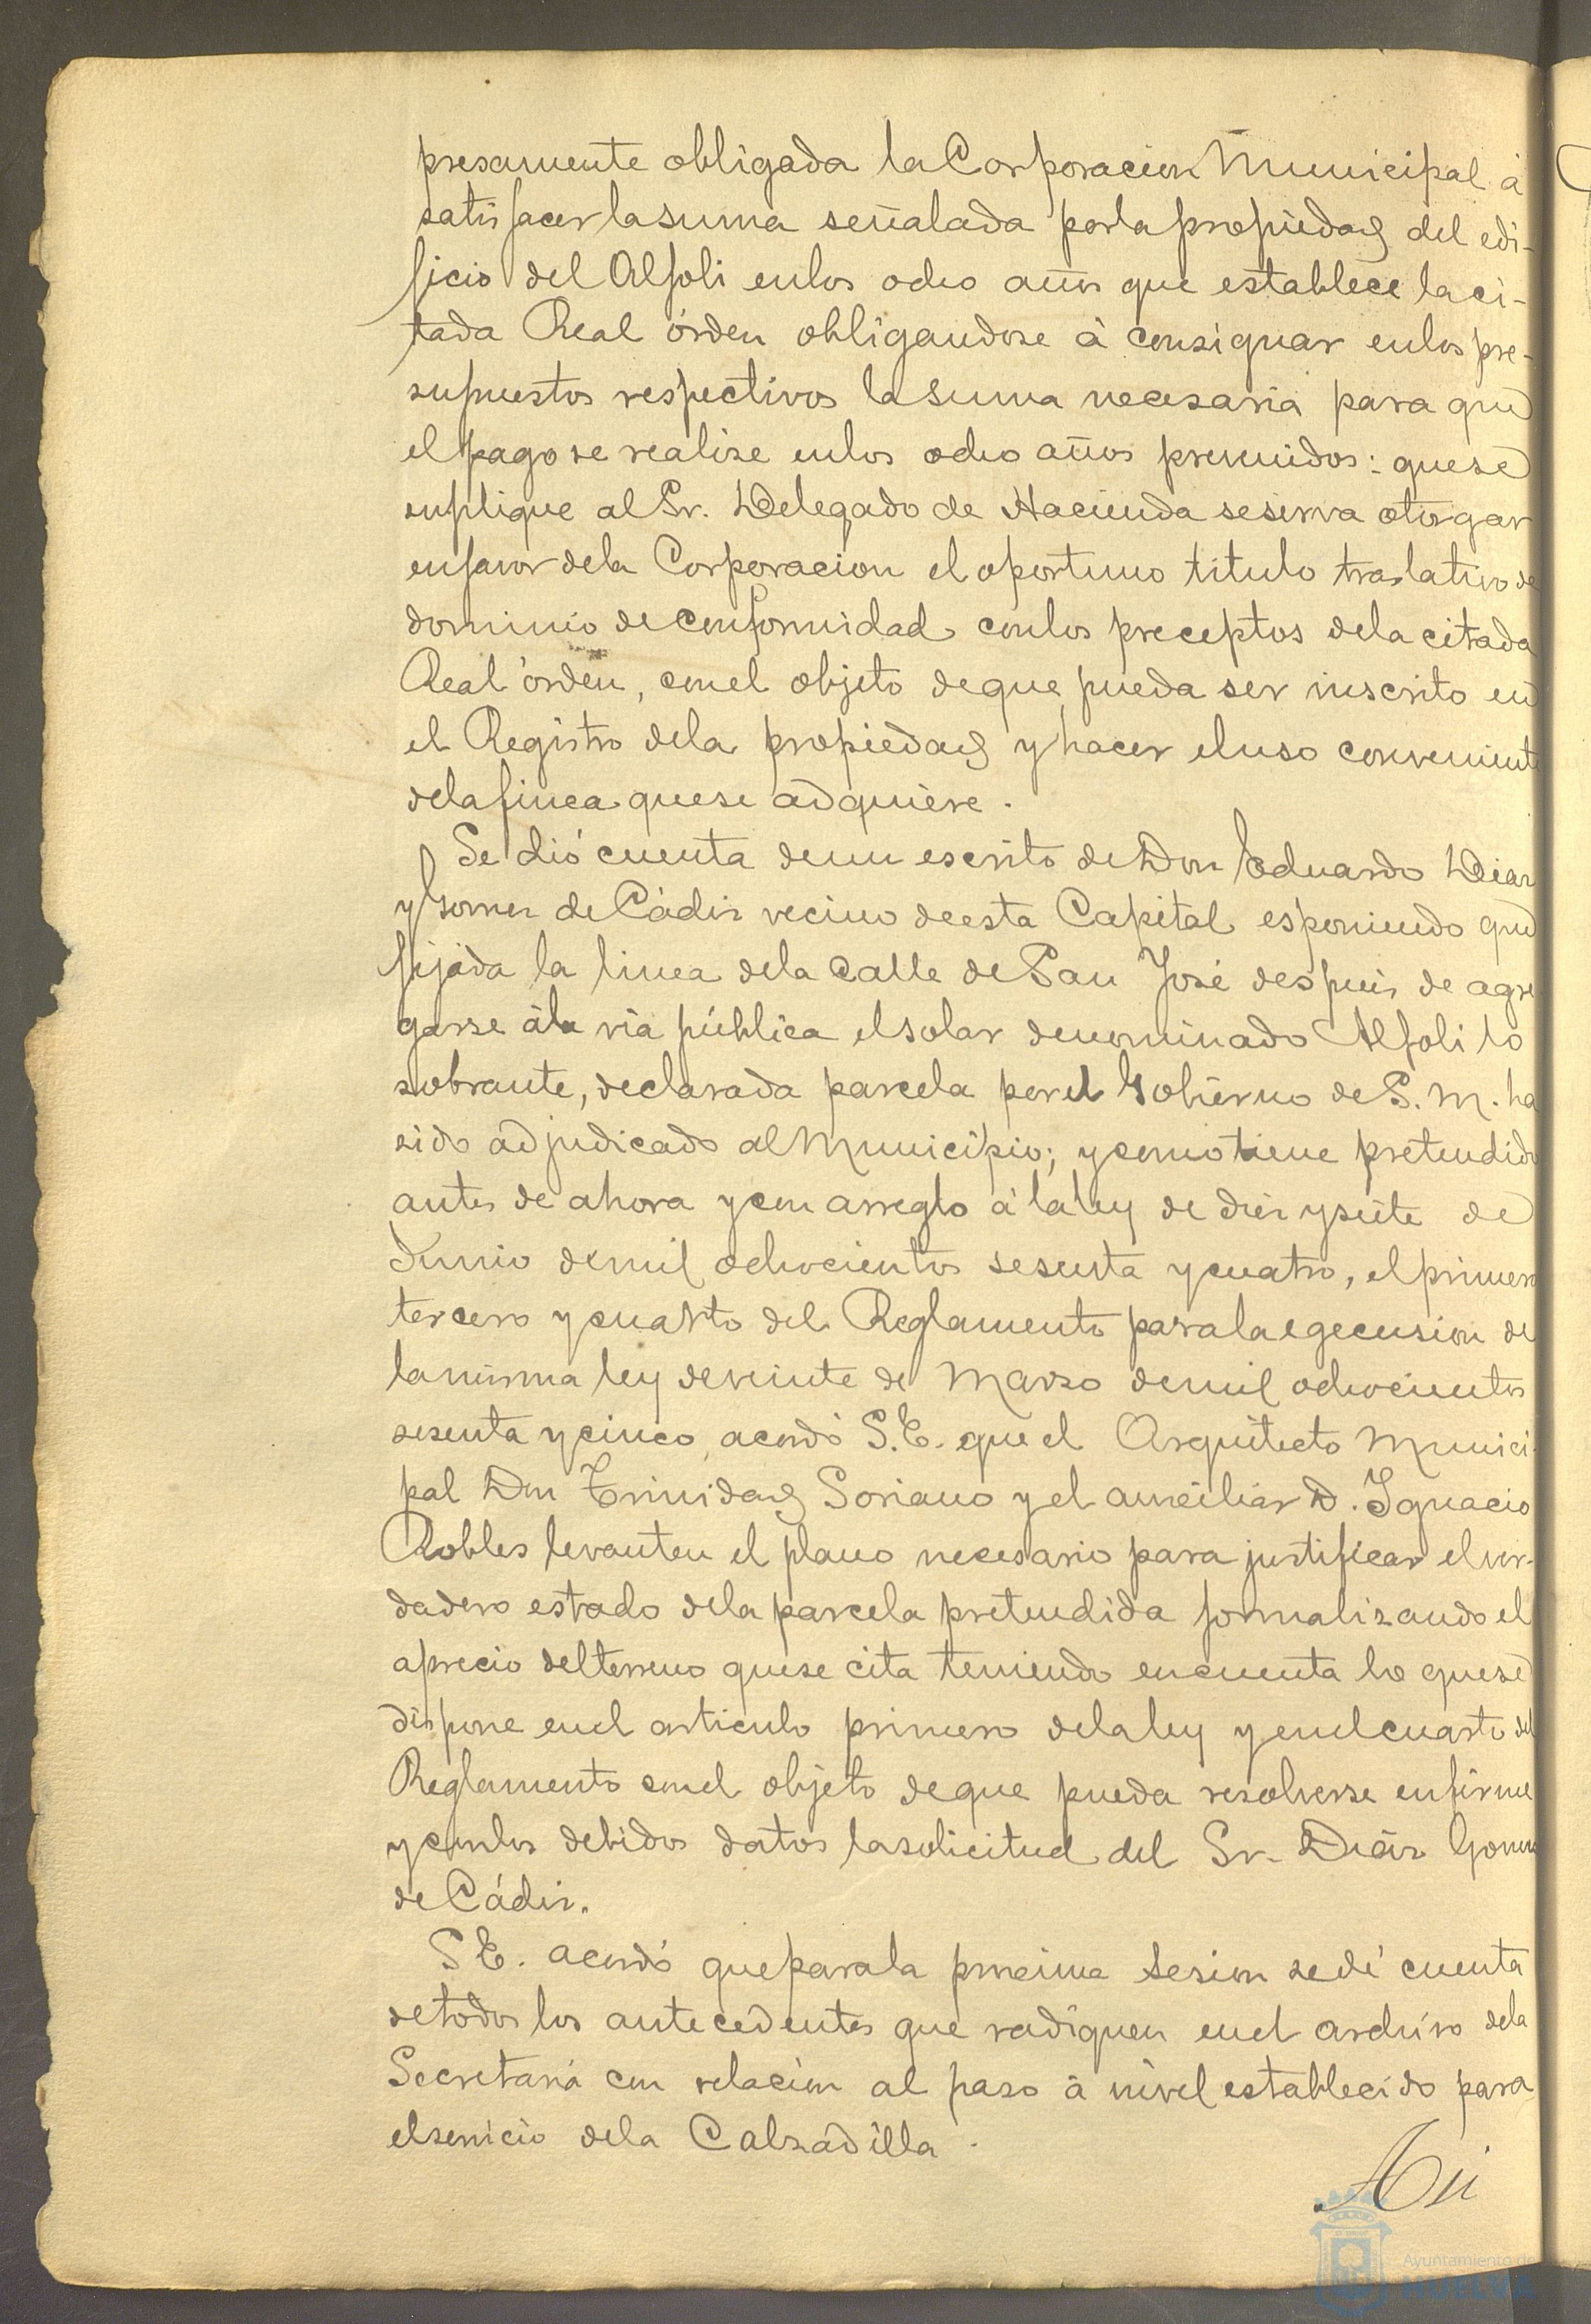 presamente obligada la Corporacion Municipal á
satisfacer la suma señalada por la propiedad del edi-
ficio del Alfoli en los ocho años que establece la ci-
tada Real órden obligandose á consignar en los pre-
supuestos respectivos la suma necesaria para que
el pago se realise en los ocho años prevenidos: que se
suplique al Sr. Delegado de Hacienda se sirva otorgar
en favor de la Corporacion el oportuno titulo traslativo de
dominio de conformidad con los preceptos de la citada
Real órden, con el objeto de que pueda ser inscrito en
el Registro de la propiedad y hacer el uso conveniente
de la finca que se adquiere.
Se dió cuenta de un escrito de Don Eduardo Diaz
y Gomez de Cádiz vecino de esta Capital esponiendo que
fijada la linea de la Calle de San José despues de agre
garse á la via pública el solar denominado Alfoli lo
sobrante, declarada parcela por el Gobierno de S. M. ha
sido adjudicado al Municipio; y como tiene pretendido
antes de ahora y con arreglo á la ley de diez y siete de
Junio de mil ochocientos sesenta y cuatro, el primero
tercero y cuarto del Reglamento para la egecusion de
la misma ley de veinte de Marzo de mil ochocientos
sesenta y cinco, acordó S.E. que el Arquitecto Munici
pal Don Trinidad Soriano y el auxiliar D. Ignacio
Robles levanten el plano necesario para justificar el ver-
dadero estado de la parcela pretendida formalizando el
aprecio del terreno que se cita teniendo en cuenta lo que se
dispone en el articulo primero de la ley y en el cuarto del
Reglamento con el objeto de que pueda resolverse en firme
y con los debidos datos la solicitud del Sr. Diaz Gomez
de Cádiz.
S E. acordó que para la proxima sesion se dé cuenta
de todos los antecedentes que radiquen en el archivo de la
Secretaria con relacion al paso á nivel establecido para
el servicio de la Calzadilla.
Ayuntamiento de
HUELVA